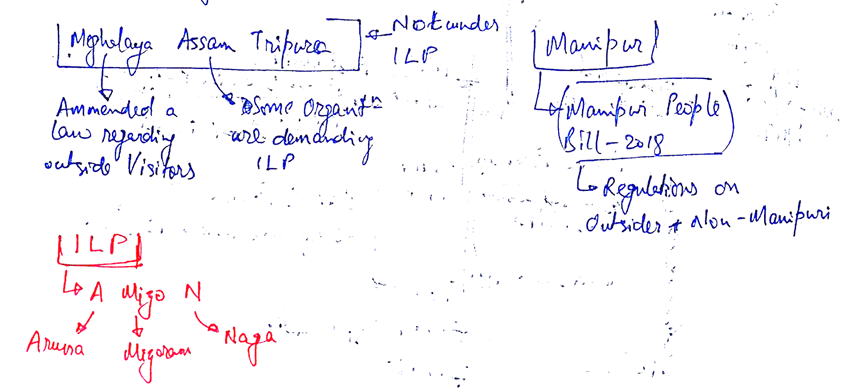 Meghalaya Assam Tripura
Not under
ILP
Ammended a
law regarding
outside Visitors
Some Organitn
are demanding
ILP
Manipur
Manipur People
Bill-2018
Regulations on
outsider + Non-Manipuri
ILP
A Mizo N
Aruna
Mizoram
Naga